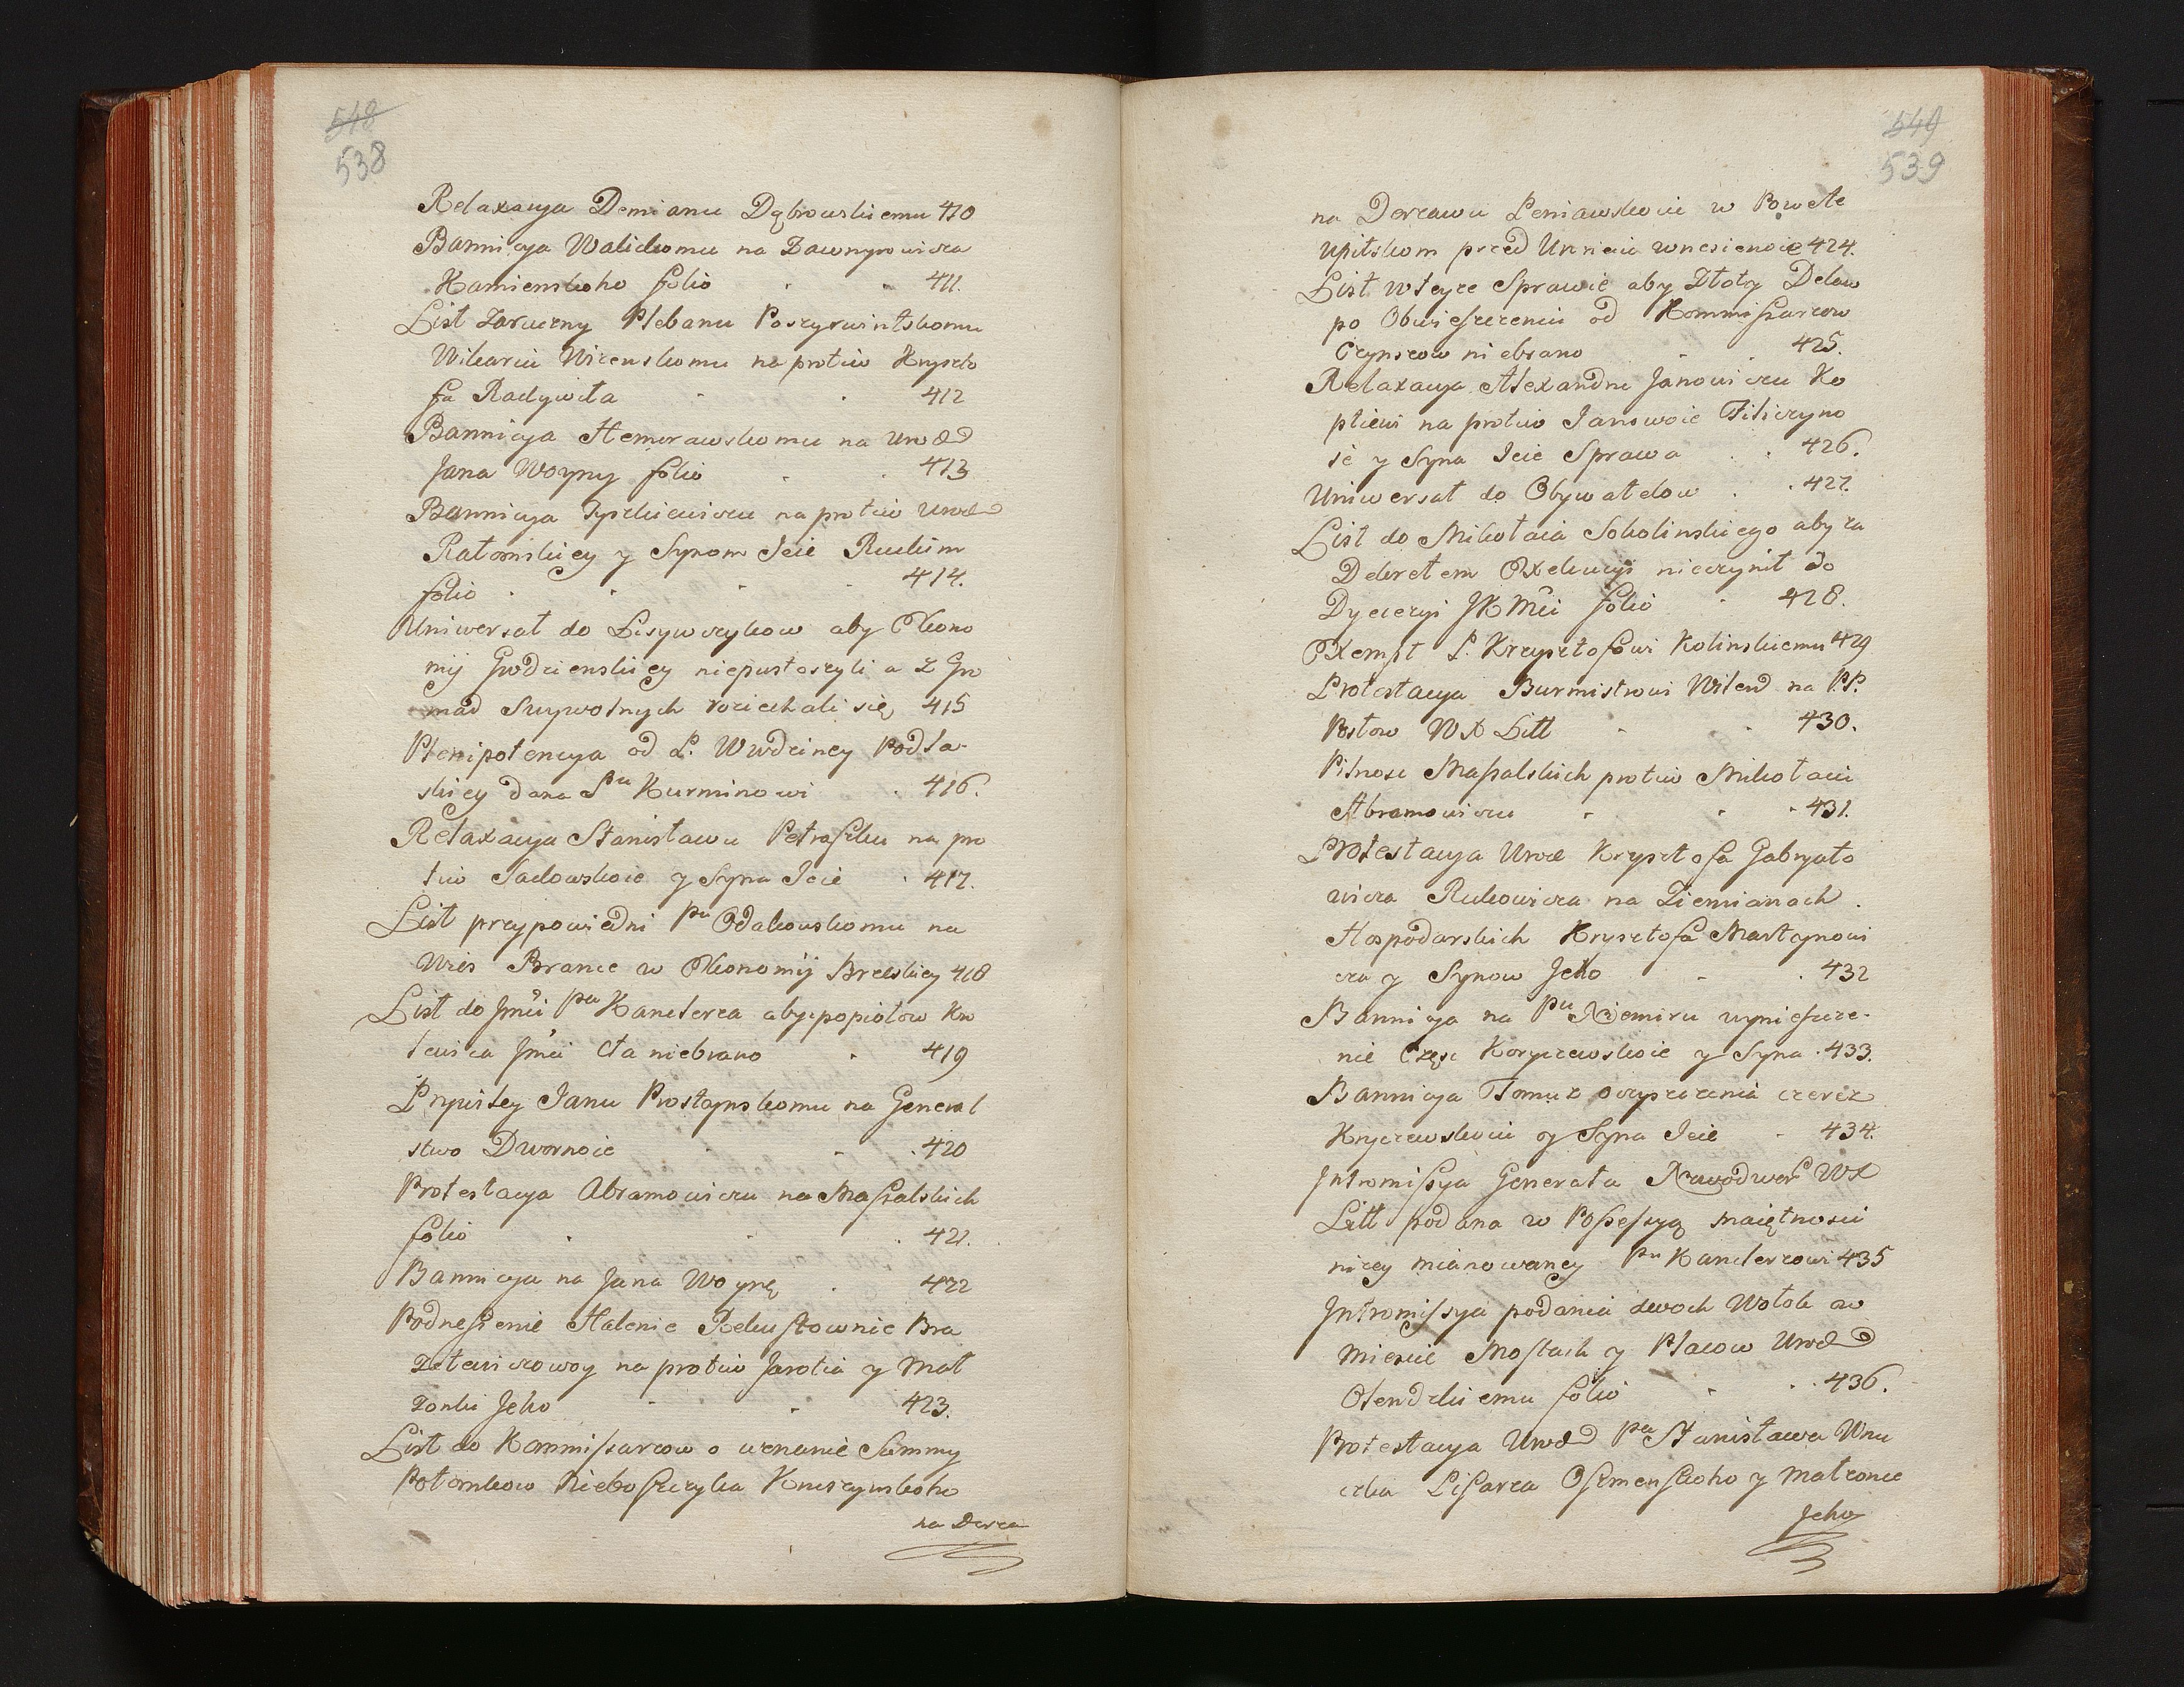 548
538
Relaxacya Demianu Dąbrowskiemu 410
Bannicya Walickomu na Dawnyrowicza
Kamienskoho folio 411.
List Zaruczny Plebanu Poszyrwintskomu
Wikariu Wizenskomu na protiw Kryszto
fa Radywiła 412
Bannicya Hemorawskomu na Urod
Jana Woyny folio 413
Bannicya Tyszkiewiczu na protiw Urod
Ratomskiey y Synom Jeie Ruckim
folio 414.
Uniwersał do Lisywczykow aby Ekono
mij Grodzienskiey niepustoszyli a z Gro
mad Swywolnych roziechali się 415
Plenipotencya od P. Wwdziney Podla-
skiey dana Pnu Kurminowi 416.
Relaxacya Stanisławu Petraszku na pro
tiw Sadowskoie y Syna Jeie 417.
List przypowiedni Pu Odakowskomu na
Wies Brance w Ekonomij Brzeskiey 418
List do Jmci Pa Kanclerza aby popiołow Kro
lewica Jmci Cła niebrano 419
Prywiley Janu Rostaynskomu na General
stwo Dwornoie 420
Protestacya Abramowiczu na Maszalskich
folio 421.
Bannicya na Jana Woynę 422
Podneszenie Halenie Rekustownie Bra
zolewiczowoy na protiw Jarotia y Mał
zonki Jeho 423.
List do Kommisarzow o uznanie Summy
Potomkow Nieboszczyka Kniszynskoho
na Derza
549
539
na Derzawu Peniawskoie w Powete
Upitskom pered Unieiu wnesienoie 424.
List w teyze Sprawie aby Dtoty Delow
po Obwieszczeniu od Kommissarzow
Czynszow ni ebrano 425.
Relaxacya Alexandru Janowiczu Ko
ptiewi na protiw Janowoie Filiczyno
ie y Syna Jeie Sprawa 426.
Uniwersał do Obywatelow 427.
List do Mikołaia Sokolinskiego aby za
Dekretem Exekucyi nieczynił do
Dyecezyi JKMci folio 428.
Exempt P. Krzysztofowi Kolinskiemu 429
Protestacya Burmistrowi Wilend na PP.
Posłow WX Litt 430.
Pilnosc Masalskich protiw Mikołaiu
Abramowiczu 431.
Protestacya Urod Krysztofa Gabryało
wicza Rukowicza na Ziemianach
Hospodarskich Krysztofa Martynowi
cza y Synow Jeho 432
Bannicya na Pu Niemiru wynieszcze-
nie Częsc Koryczewskoie y Syna 433.
Bannicya Tomuz oczyszczenia czerez
Kryczewskoiu y Syna Jeie 434.
Intromissya Generała Nawodwor WX
Litt podana w Possessyą maiętnosci
nizey mianowaney Pu Kanclerzowi 435
Intromissya podania dwoch Włok w
Miescie Mostach y Placow Urod
Olendzkiemu folio 436.
Protestacya Urod Pa Stanisława Wnu
czka Pisarza Oszmenskoho y Małzonce
Jeho